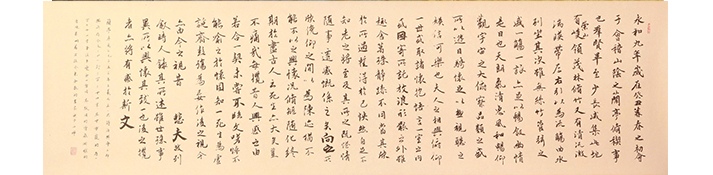 永和九年歲在癸丑暮春之初會
于會稽山陰之蘭亭脩稧事
也群賢畢至少長咸集此地
有崇山峻領茂林脩竹又有清流激
湍暎帶左右引以為流觴曲水
列坐其次雖無絲竹管弦之
盛一觴一詠亦足以暢敘幽情
是日也天朗氣清惠風和暢仰
觀宇宙之大俯察品類之盛
所以遊目騁懷足以極視聽之
娛信可樂也夫人之相與俯仰
一世或取諸懷抱悟言一室之內
或因寄所託放浪形骸之外雖
趣舍萬殊靜躁不同當其欣
於所遇蹔得於己怏然自足不
知老之將至及其所之既惓情
隨事遷感慨係之矣向之所
欣俛仰之間以為陳迹猶不
能不以之興懷況脩短隨化終
期於盡古人云死生亦大矣豈
不痛哉每攬昔人興感之由
若合一契未嘗不臨文嗟悼不
能喻之於懷固知一死生為虛
誕齊彭殤為妄作後之視今
亦由今之視昔悲夫故列
敘時人錄其所述雖世殊事
異所以興懷其致一也後之攬
者亦將有感於斯文